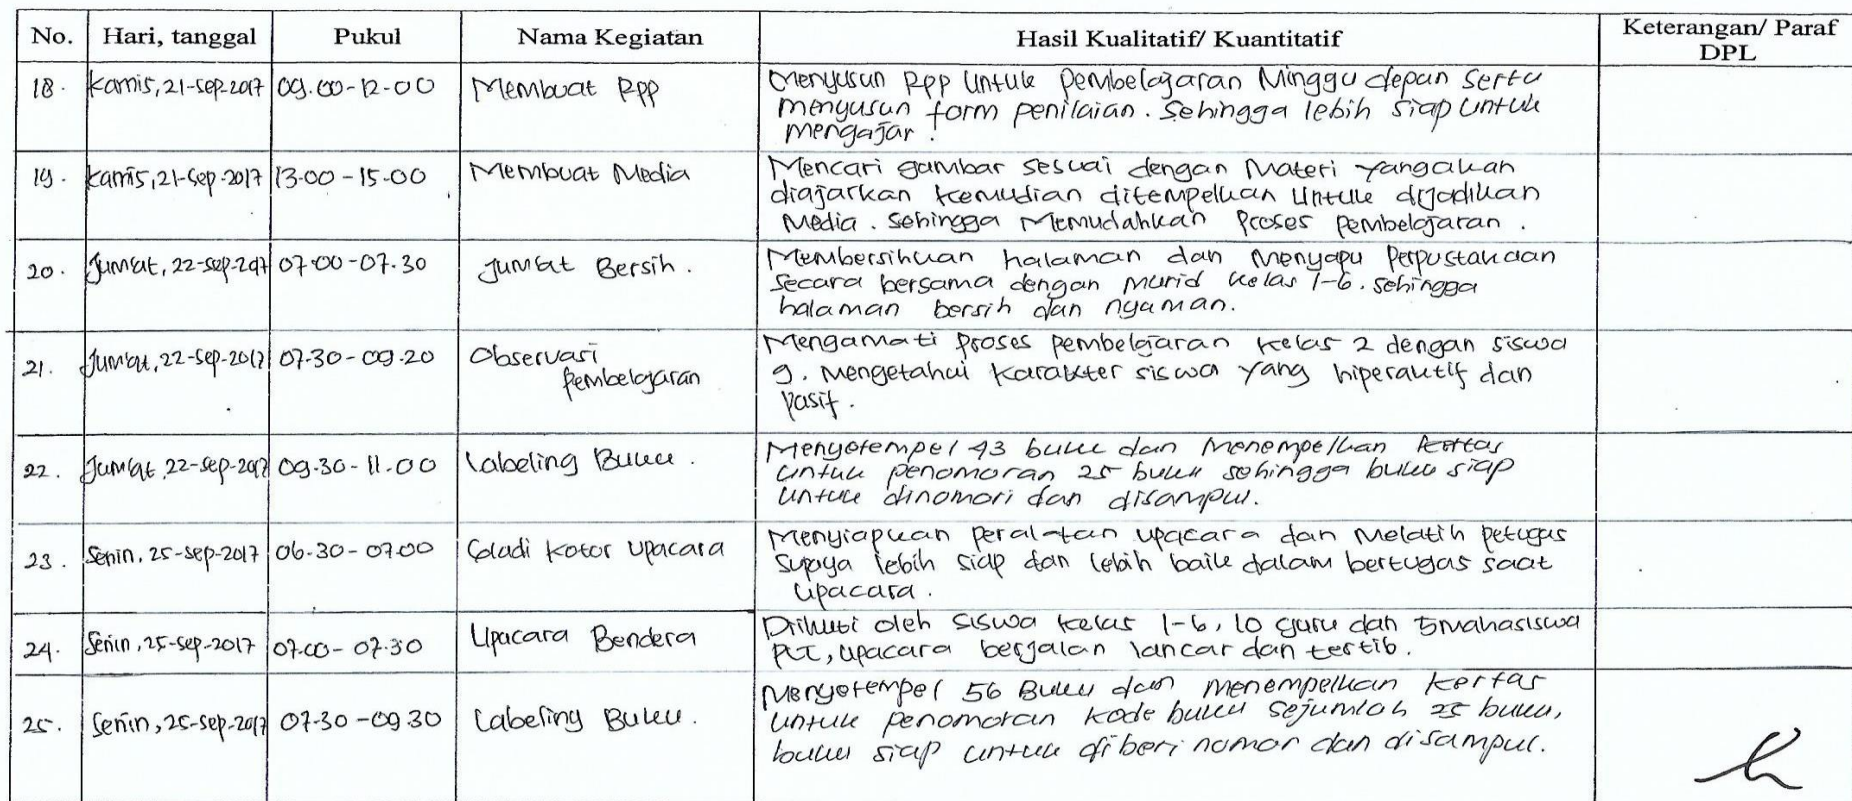 No. Hari, tanggal Pukul Nama Kegiatan Hasil Kualitatif/ Kuantitatif Keterangan/ Paraf DPL
18. Kamis, 21-Sep-2017 09.00-12.00 Membuat RPP Menyusun RPP untuk pembelajaran Minggu depan serta
menyusun form penilaian. Sehingga lebih siap untuk
mengajar.
19. Kamis, 21-Sep-2017 13.00-15.00 Membuat Media Mencari gambar sesuai dengan Materi yang akan
diajarkan kemudian ditempelkan untuk dijadikan
Media. Sehingga Memudahkan Proses pembelajaran.
20. Jumat, 22-Sep-2017 07.00-07.30 Jumat Bersih. Membersihkan halaman dan Menyapu Perpustakaan
secara bersama dengan murid kelas 1-6. sehingga
halaman bersih dan nyaman.
21. Jumat, 22-Sep-2017 07.30-09.20 Observasi Mengamati Proses pembelajaran kelas 2 dengan siswa
pembelajaran 9. Mengetahui karakter siswa yang hiperaktif dan
pasif.
22. Jumat, 22-Sep-2017 09.30-11.00 Labeling Buku. Menyetempel 43 buku dan Menempelkan kertas
untuk penomoran 25 buku sehingga buku siap
untuk dinomori dan disampul.
23. Senin, 25-Sep-2017 06.30-07.00 Geladi kotor upacara Menyiapkan peralatan upacara dan Melatih petugas
supaya lebih siap dan lebih baik dalam bertugas saat
upacara.
24. Senin, 25-Sep-2017 07.00-07.30 Upacara Bendera Diikuti oleh siswa kelas 1-6, 10 guru dan 5 mahasiswa
PLT, upacara berjalan lancar dan tertib.
25. Senin, 25-Sep-2017 07.30-09.30 Labeling Buku. Menyetempel 56 Buku dan menempelkan kertas
untuk penomoran kode buku sejumlah 25 buku,
buku siap untuk diberi nomor dan disampul.